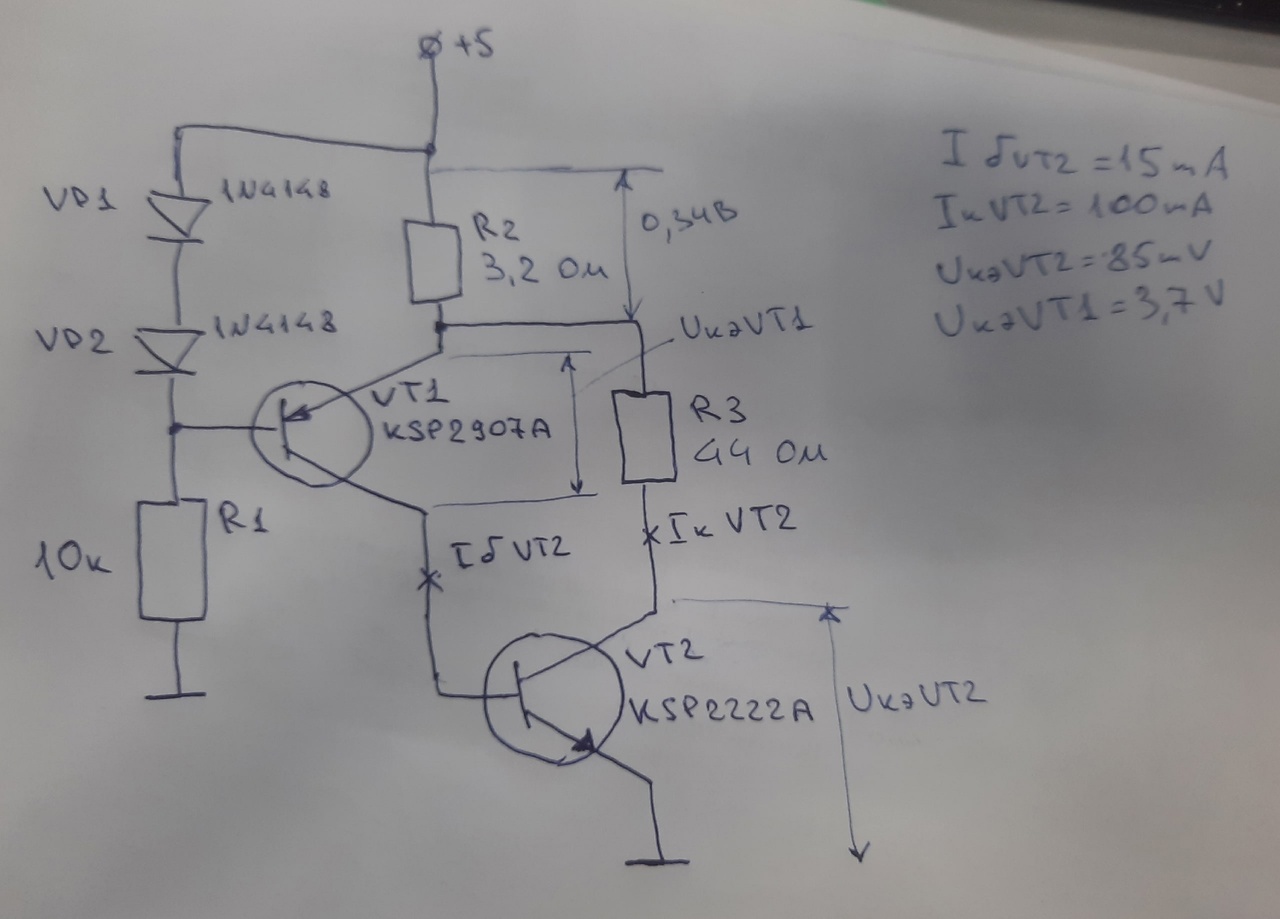 +5
VD1
1N4148
R2
3,2 Ом
0,34В
VD2
1N4148
VT1
KSP2907A
UкэVT1
R3
44 Ом
R1
10к
Iб VT2
Iк VT2
VT2
KSP2222A
UкэVT2
I бVT2 = 15 mA
Iк VT2 = 100 mA
UкэVT2 = 85 mV
UкэVT1 = 3,7 V